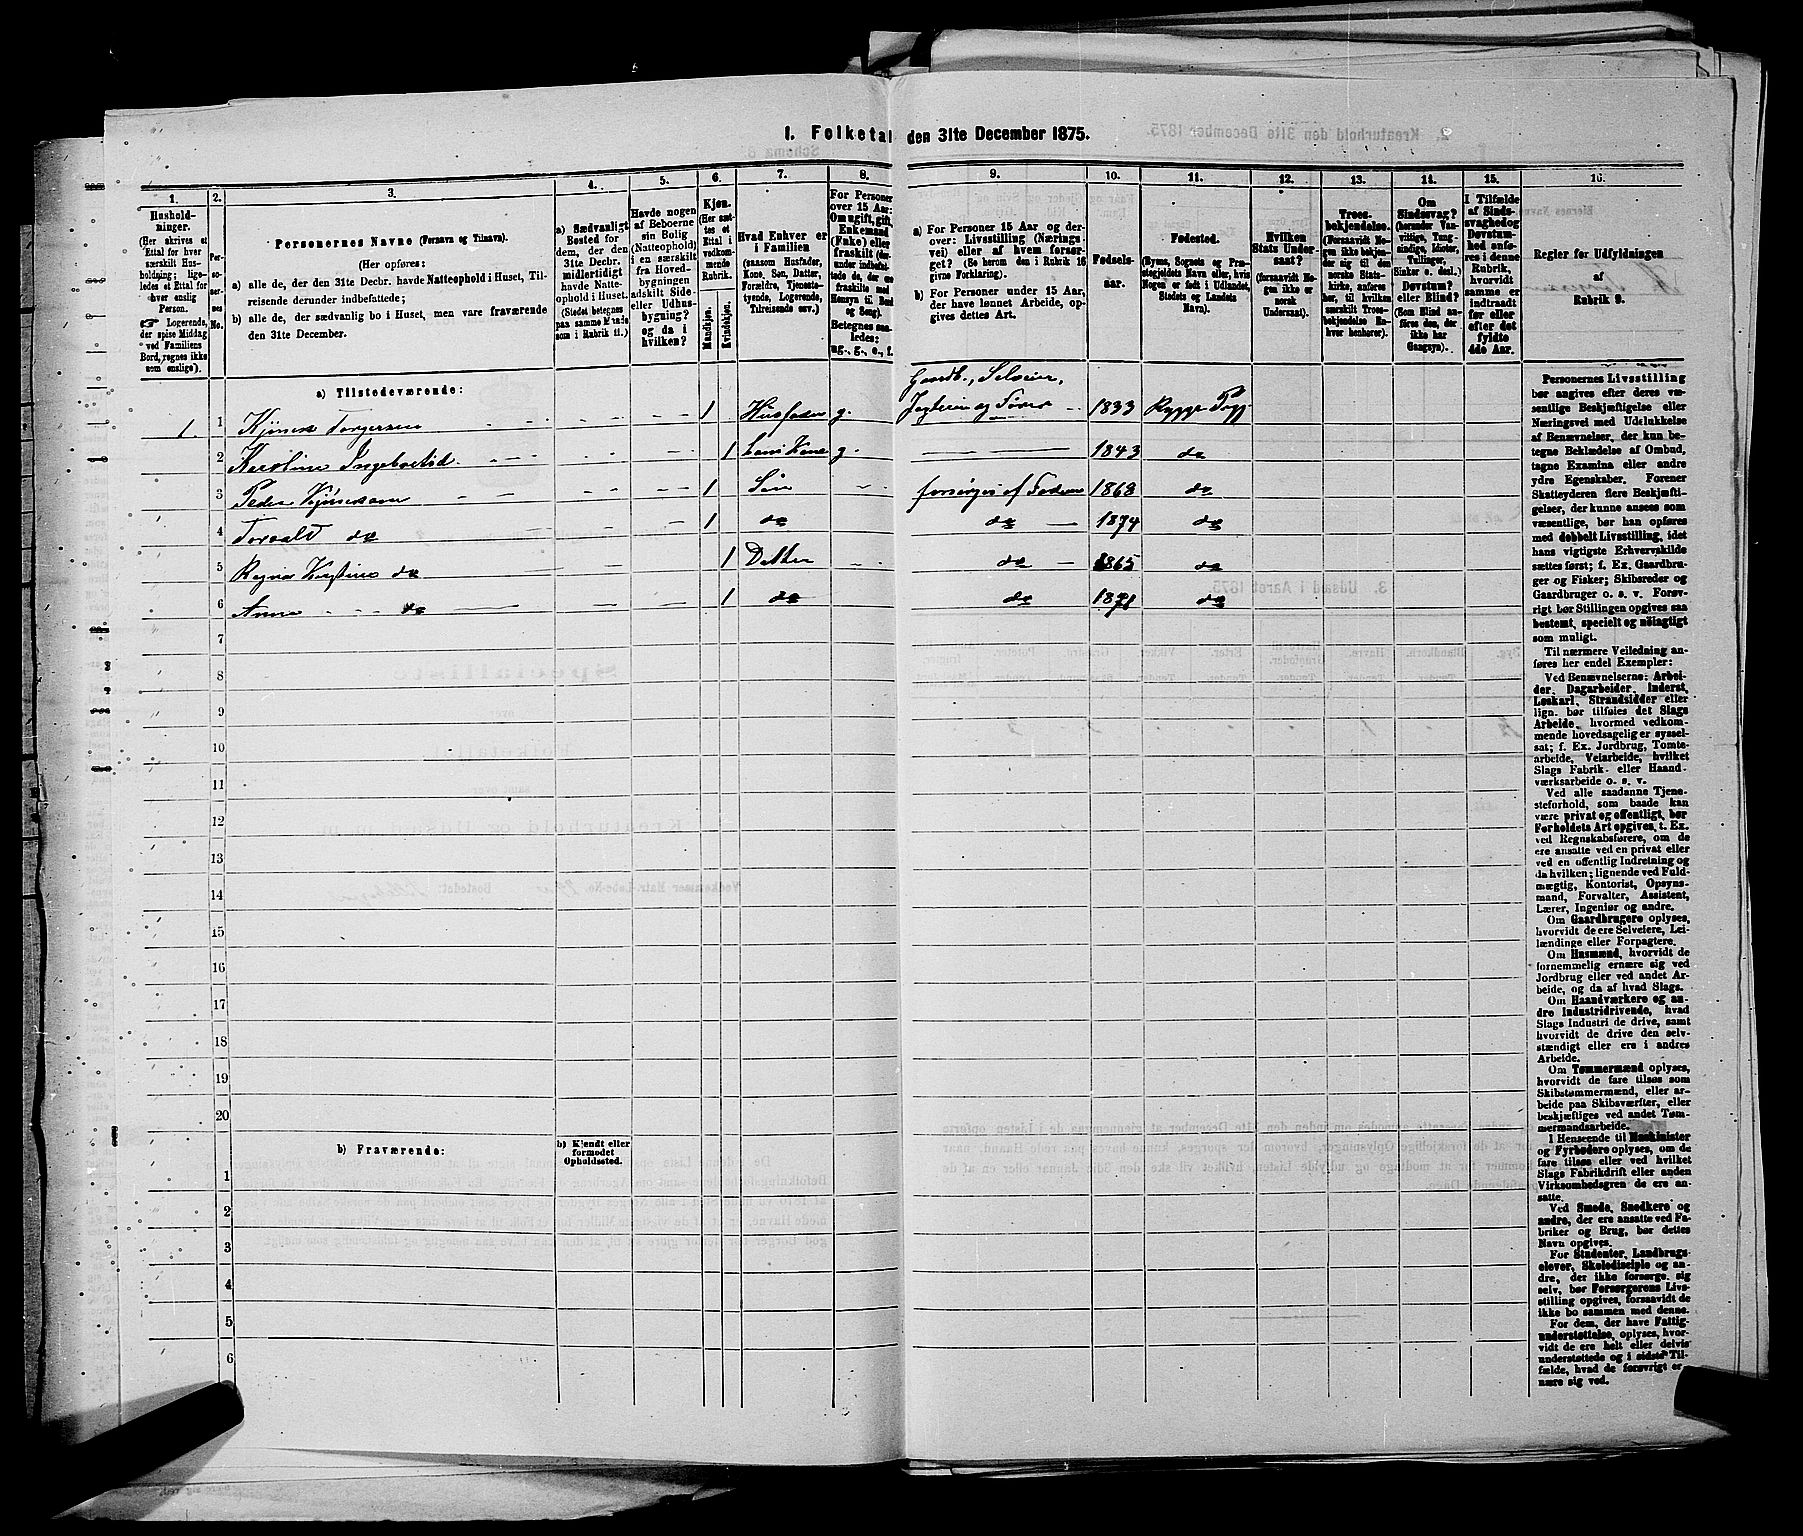 1. Folketal den 31te December 1875.
1. 2. 3. 4. 5. 6. 7. 8. 9. 10. 11. 12. 13. 14. 15. 16.
Husholdninger.
(Her skrives et
Ettal for hver
særskilt Husholdning;
ligeledes et Ettal for
hver enslig
Person.
Logerende,
der spise Middag
ved Familiens
Bord, regnes ikke
som enslige).
Personernes No.
Personernes Navne (Fornavn og Tilnavn).
(Her opføres:
a) alle de, der den 31te Decbr. havde Natteophold i Huset, Tilreisende derunder indbefattede;
b) alle de, der sædvanlig bo i Huset, men vare fraværende
den 31te December.
a) Sædvanligt
Bosted for
dem, der den
31te Decbr.
midlertidigt
havde Natteophold
i Huset.
(Stedet betegnes
paa samme Maade
som i Rubrik 11.)
Havde nogen
af Beboerne
sin Bolig
(Natteophold)
i en særskilt
fra Hovedbygningen
adskilt Side-
eller Udhusbygning?
og da i
hvilken?
Kjøn.
(Her sættes
et
Ettal i
vedkommende
Rubrik.
Mandkjøn.
Kvindekjøn.
Hvad Enhver er
i Familien
(saasom Husfader,
Kone, Søn, Datter,
Forældre, Tjenestetyende,
Logerende,
Tilreisende osv.)
For Personer
over 15 Aar:
Om ugift, gift,
Enkemand
(Enke) eller
fraskilt
Betegnes saaledes:
ug., g., e., f.
a) For Personer 15 Aar og derover:
Livsstilling (Næringsvei)
eller af hvem forsørget?
(Se herom den i Rubrik 16
givne Forklaring).
b) For Personer under 15 Aar,
der have lønnet Arbeide, opgives
dettes Art.
Fødselsaar.
Fødested.
(Byens, Sognets og Præstegjeldets
Navn eller, hvis
Nogen er født i Udlandet,
Stedets og Landets
Navn).
Hvilken
Stats Undersaat?
(forsaavidt Nogen
ikke er
norsk
Undersaat).
Troesbekjendelse.
(Forsaavidt Nogen
ikke bekjender
sig til den
norske Statskirke,
anføres
her, til hvilken
særskilt Troesbekjendelse
Enhver
henhører).
Om
Sindssvag?
(herunder Vanvittige,
Tungsindige,
Idioter,
Tullinger,
Sinker o. desl.)
Døvstum?
eller Blind?
(Som Blind anføres
den, der
ikke har
Gangsyn).
I Tilfælde
af Sindssvaghed
og
Døvstumhed
anføres
i denne
Rubrik,
hvorvidt
samme er
indtraadt
før eller
efter det
fyldte
4de Aar.
Regler for Udfyldningen
af
Rubrik 9.
a) Tilstedeværende:
Gaardb., Selveier,
1. 1 Kjøner Torgersen 1 Husfader g. Jagteier og Fører 1833 Rygge Pgj
2 Karoline Ingebretsd. 1 hans Kone g. 1843 do
3 Peder Kjønersen 1 Søn forsørges af Faderen 1868 do
4 Torvald do 1 do do 1874 do
5 Ragna Kristine do 1 Datter do 1865 do
6 Anna do 1 do do 1871 do
7
8
9
10
11
12
13
14
15
16
17
18
19
20
b) Fraværende:
b) Kjendt eller
formodet
Opholdssted.
1
2
3
4
5
6
Personernes Livsstilling
bør angives efter deres væsentlige
Beskjæftigelse eller
Næringsvei med Udelukkelse
af Benævnelser, der kun betegne
Beklædelse af Ombud,
tagne Examina eller andre
ydre Egenskaber. Forener
Skatteyderen flere Beskjæftigelser,
der kunne ansees som
væsentlige, bør han opføres
med dobbelt Livsstilling, idet
hans vigtigste Erhvervskilde
sættes først; f. Ex. Gaardbruger
og Fisker; Skibsreder og
Gaardbruger o. s. v. Forøvrigt
bør Stillingen opgives saa
bestemt, specielt og nöiagtigt
som muligt.
Til nærmere Veiledning anføres
her endel Exempler:
Ved Benævnelserne: Arbeider,
Dagarbeider, Inderst,
Løskarl, Strandsidder eller
lign. bør tilføies det Slags
Arbeide, hvormed vedkommende
hovedsagelig er sysselsat;
f. Ex. Jordbrug, Tomtearbeide,
Veiarbeide, hvilket
Slags Fabrik- eller Haandværksarbeide
o. s. v.
Ved alle saadanne Tjenesteforhold,
som baade kan
være privat og offentligt, bør
Forholdets Art opgives, t. Ex.
ved Regnskabsførere, om de
ere ansatte ved en privat eller
ved en offentlig Indretning og
da hvilken; lignende ved Fuldmægtig,
Kontorist, Opsynsmand,
Forvalter, Assistent,
Lærer, Ingeniør og andre.
Om Gaardbrugere oplyses,
hvorvidt de ere Selveiere, Leilændinge
eller Forpagtere.
Om Husmænd, hvorvidt de
fornemmelig ernære sig ved
Jordbrug eller ved andet Arbeide,
og da af hvad Slags.
Om Haandværkere og andre
Industridrivende, hvad
Slags Industri de drive, samt
hvorvidt de drive den selvstændigt
eller ere i andres
Arbeide.
Om Tømmermænd oplyses,
hvorvidt de fare tilsøs som
Skibstømmermænd, eller arbeide
paa Skibsværfter, eller
beskjæftiges ved andet Tømmermandsarbeide.
I Henseende til Maskinister
og Fyrbødere oplyses, om de
fare tilsøs eller ved hvilket
Slags Fabrikdrift eller anden
Virksomhedsgren de ere ansatte.
Ved Smede, Snedkere og
andre, der ere ansatte ved Fabriker
og Brug, bør dettes
Navn opgives.
For Studenter, Landbrugselever,
Skoledisciple og andre,
der ikke forsørge sig
selv, bør Forsørgerens Livsstilling
opgives, forsaavidt de
ikke bo sammen med denne.
For dem, der have Fattigunderstøttelse,
oplyses, hvorvidt
de ere helt eller delvis
understøttede og i sidste Tilfælde,
hvad de forøvrigt ernære
sig ved.